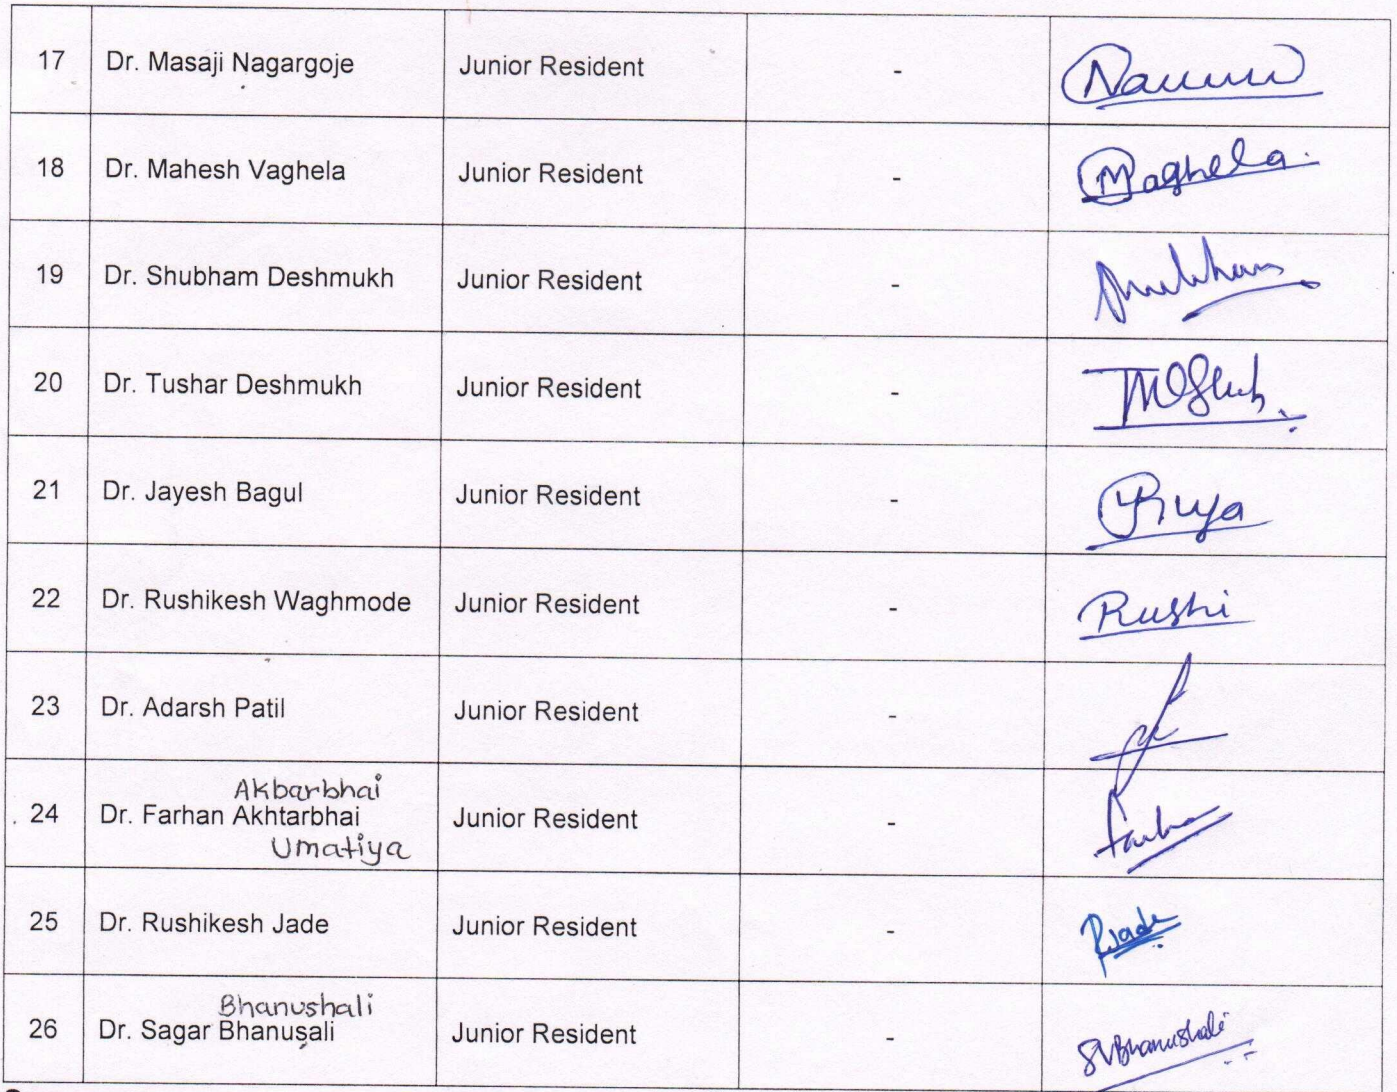 17 Dr. Masaji Nagargoje Junior Resident -
18 Dr. Mahesh Vaghela Junior Resident - Maghela.
19 Dr. Shubham Deshmukh Junior Resident - Shubham
20 Dr. Tushar Deshmukh Junior Resident -
21 Dr. Jayesh Bagul Junior Resident -
22 Dr. Rushikesh Waghmode Junior Resident - Rushi
23 Dr. Adarsh Patil Junior Resident -
Akbarbhai
24 Dr. Farhan Akhtarbhai Junior Resident -
Umatiya
25 Dr. Rushikesh Jade Junior Resident - RJade
Bhanushali
26 Dr. Sagar Bhanusali Junior Resident - SVBhanushali